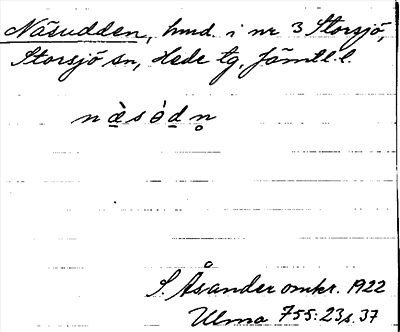 Näsudden, hmd. i nr 3 Storsjö,
Storsjö sn, Hede tg, Jämtl. l.
næ̀sòdn̥
S. Åsander omkr. 1922
Ulma 755:23 s. 37